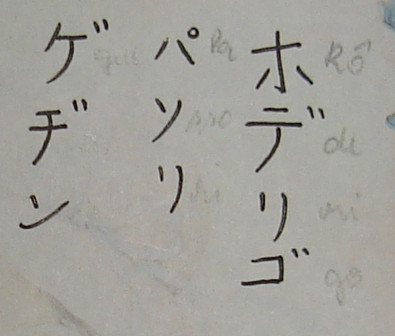 ホデリゴ
Rô
ri
go
パソリ
Pa
sso
ri
ゲヂン
gue